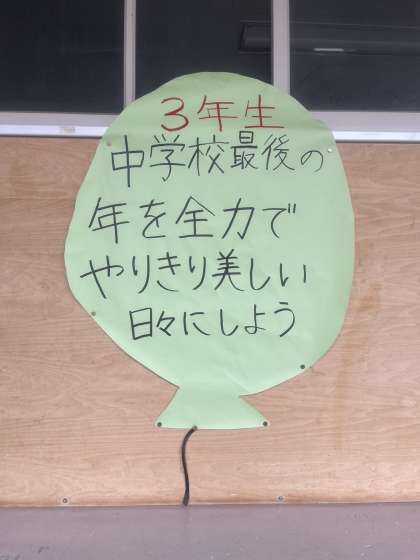 3年生
中学校最後の
年を全力で
やりきり美しい
日々にしよう